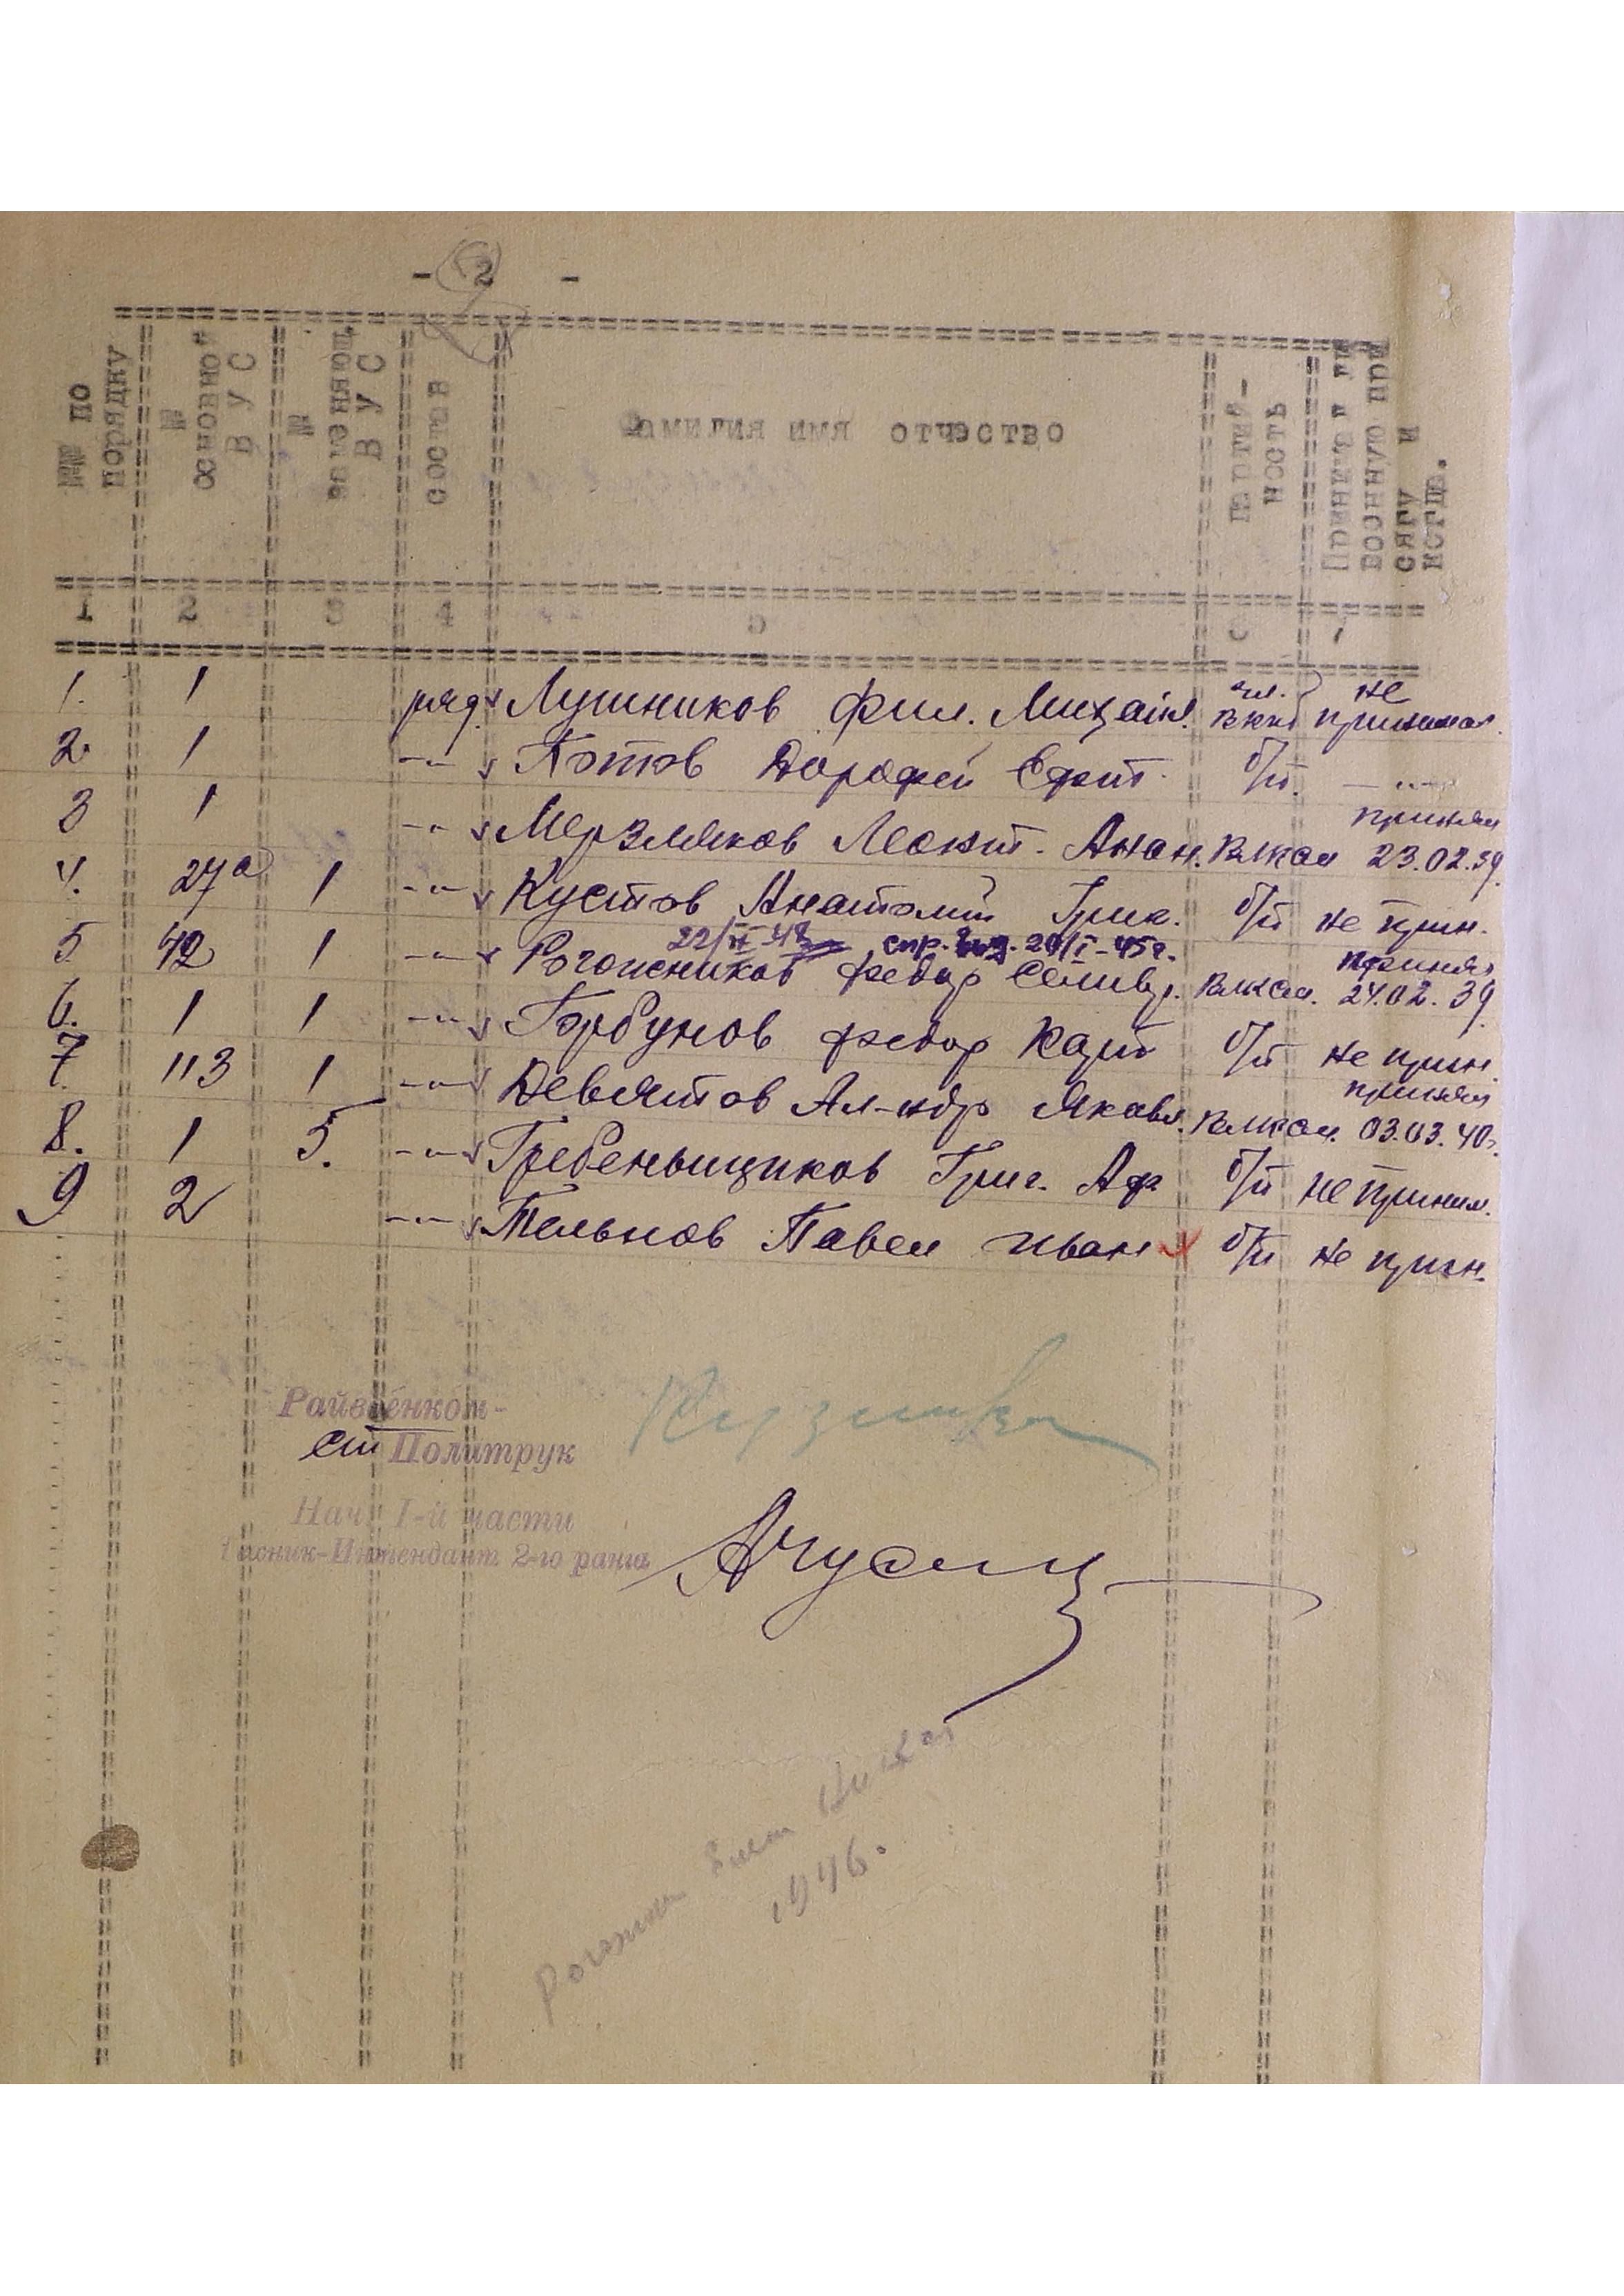 - 2 -
№№ по порядку
№ основной ВУС
№ ВУС
состав
фамилия имя отчество
партий-ность
Принял ли военную присягу и
1 2 3 4 5
1. 1 ряд. Лушников Фил. Михайл. чл. ВКПб не принимал
2. 1 -"- Дорофей б/п. -"-
3 1 -"- Мерзляков Леонт. Анан. Влксм принял 23.02.39
4. 27а 1 -"- Кустов Анатолий Григ. б/п не прин.
22/ 48 спр. выд. 20/I-45г.
5 42 1 -"- Рогожников Федор Селивр. Влксм. принял 24.02.39
6. 1 1 -"- Горбунов Федор Карп б/п не прин.
7. 113 1 -"- Девятов Ал-ндр Яковл. Влксм. принял 03.03.40г.
8. 1 5. -"- Гребеньщиков Григ. Аф б/п не приним.
9 2 -"- Тельнов Павел Иван б/п не прин.
Райвоенком-
ст Политрук
Нач. I-й части
Интендант 2-го ранга
1946.